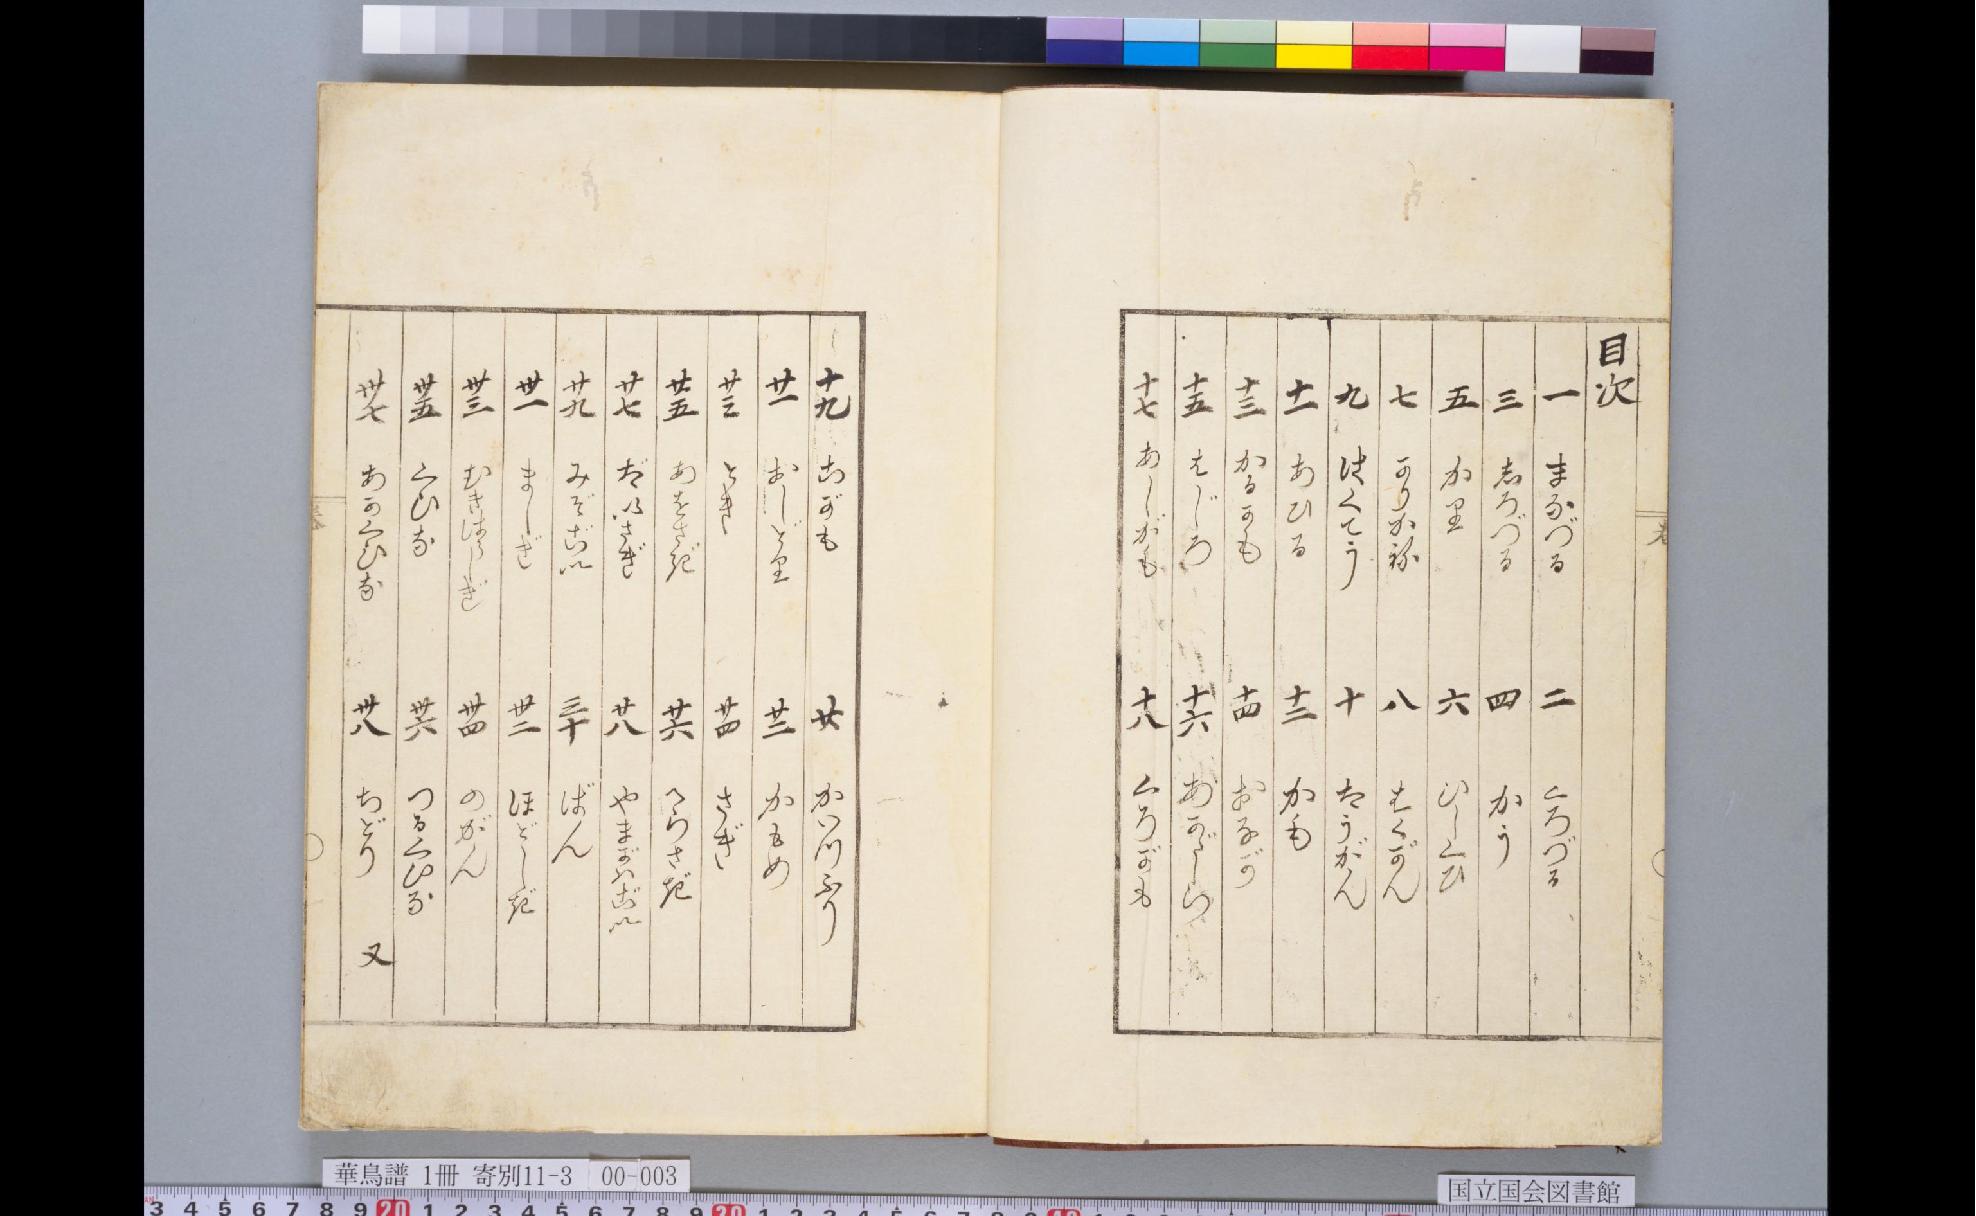 目次
一 まなづる 二 くろづる
三 しろづる 四 かう
五 かり 六 ひしくひ
七 かりかね 八 はくがん
九 はくてう 十 たうがん
十一 あひる 十二 かも
十三 かるかも 十四 おなが
十五 はじろ 十六 あかがしら
十七 あしがも 十八 くろがも
十九 こがも 廿 かいつふり
廿一 おしどり 廿二 かもめ
廿三 とき 廿四 さぎ
廿五 あをさぎ 廿六 へらさぎ
廿七 だいさぎ 廿八 やまがはごい
廿九 みぞごい 三十 ばん
卅一 ましぎ 卅二 ほどしぎ
卅三 むきはらしぎ 卅四 のがん
卅五 くひな 卅六 つるくひな
卅七 あかくひな 卅八 ちどり 又
華鳥譜 1冊 寄別11-3 00-003
国立国会図書館